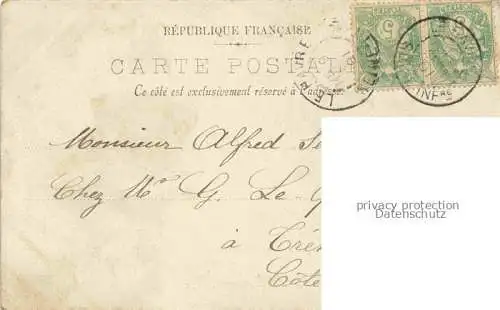 RÉPUBLIQUE FRANÇAISE
CARTE POSTAL
Ce côté est exclusivement réservé à l'adresse.
Monsieur Alfred Se
Chez Mr G. Le
à Tré
Côte
privacy protection
Datenschutz